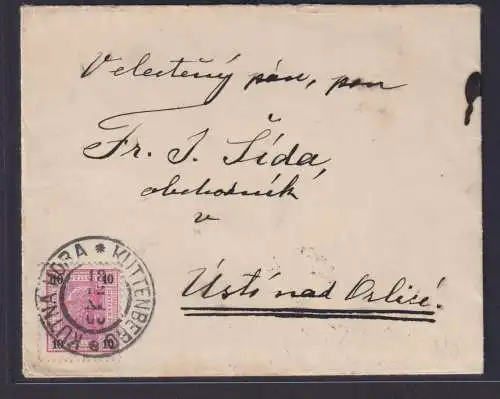 Velectený pán, pan
Fr. J. Šída,
obchodník
v
Ústí nad Orlicí.
KUTNÁ HORA * KUTTENBERG *
10 10
10 10